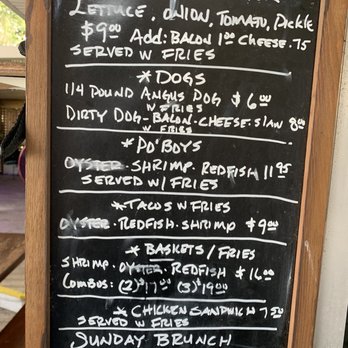 LETTUCE, ONION, TOMATO, Pickle
$9.00 Add: BACON 1.00 CHEESE .75
SERVED W FRIES
*DOGS
1/4 POUND ANGUS DOG $6.00
W FRIES
DIRTY DOG-BACON-CHEESE-SLAW 8.00
W FRIES
*PO'BOYS
OYSTER-SHRIMP-REDFISH 11.95
SERVED W/FRIES
*TACOS W FRIES
OYSTER-REDFISH-SHRIMP $9.00
*BASKETS/FRIES
SHRIMP-OYSTER-REDFISH $16.00
COMBOS: (2)$17.00 (3)$19.00
*CHICKEN SANDWICH 7.50
SERVED W FRIES
SUNDAY BRUNCH